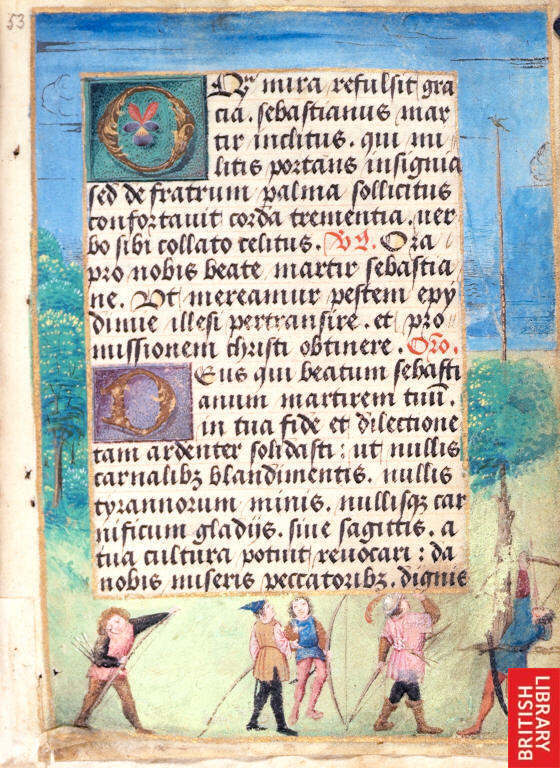 53
O Qm mira refulsit gra
cia. sebastianus mar
tir inclitus. qui mi
litis portans insignia
sed de fratrum palma sollicitus
confortauit corda trementia. uer
bo sibi collato celitus. Vs. Ora
pro nobis beate martir sebastia
ne. Vt mereamur pestem epy
dimie illesi pertransire. et pro
missionem christi obtinere. Oro.
Deus qui beatum sebasti
anum martirem tuu̅.
in tua fide et dilectione
tam ardenter solidasti: ut nullis
carnalibꝫ blandimentis. nullis
tyrannorum minis. nullisqꝫ car
nificum gladijs. siue sagittis. a
tua cultura potuit reuocari: da
nobis miseris peccatoribꝫ. dignis
BRITISH
LIBRARY